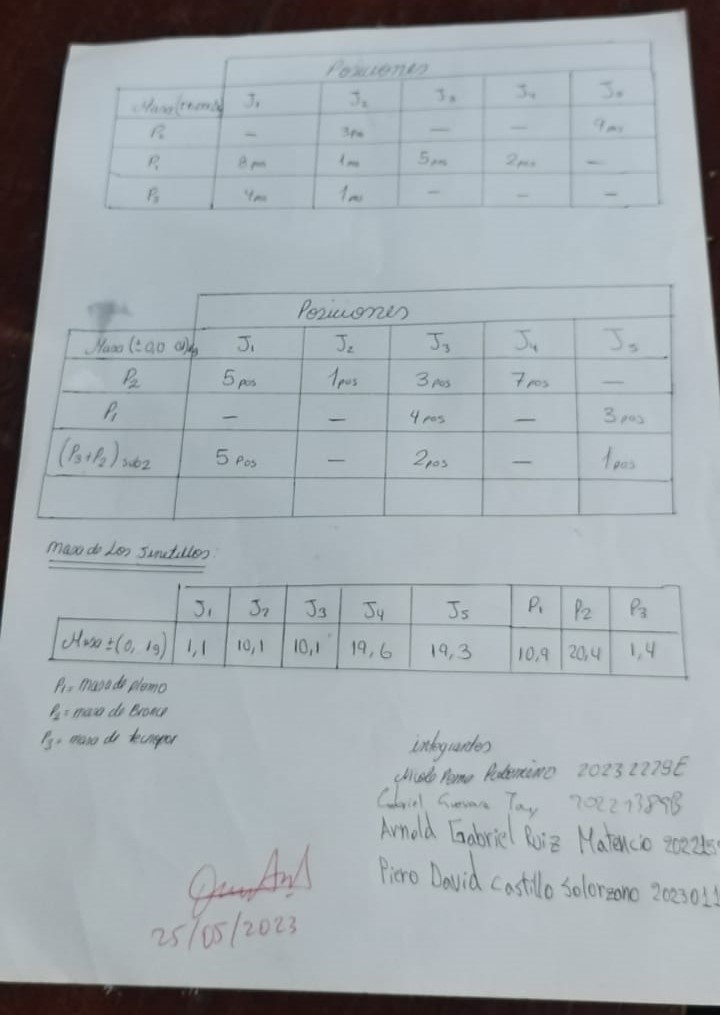 Posiciones
J₁ J₂ J₃ J₄ J₅
P₂ — 3pos — — 9pos
P₁ 8pos 1pos 5pos 2pos —
P₃ 4pos 1pos — — —
Posiciones
Masa (±0,0 J₁ J₂ J₃ J₄ J₅
P₂ 5pos 1pos 3pos 7pos —
P₁ — — 4pos — 3pos
(P₃+P₂) sub2 5pos — 2pos — 1pos
masa de Los Jinetillos:
J₁ J₂ J₃ J₄ J₅ P₁ P₂ P₃
Masa ±(0, 1g) 1,1 10,1 10,1 19,6 19,3 10,9 20,4 1,4
P₁= masa de plomo
P₂= masa de Bronce
P₃= masa de tecnopor
integrantes
Poma Palomino 20232279E
Gabriel Guevara Tay 20221389B
Arnold Gabriel Ruiz Matencio 202215
Piero David Castillo Solorzano 2023011
25/05/2023